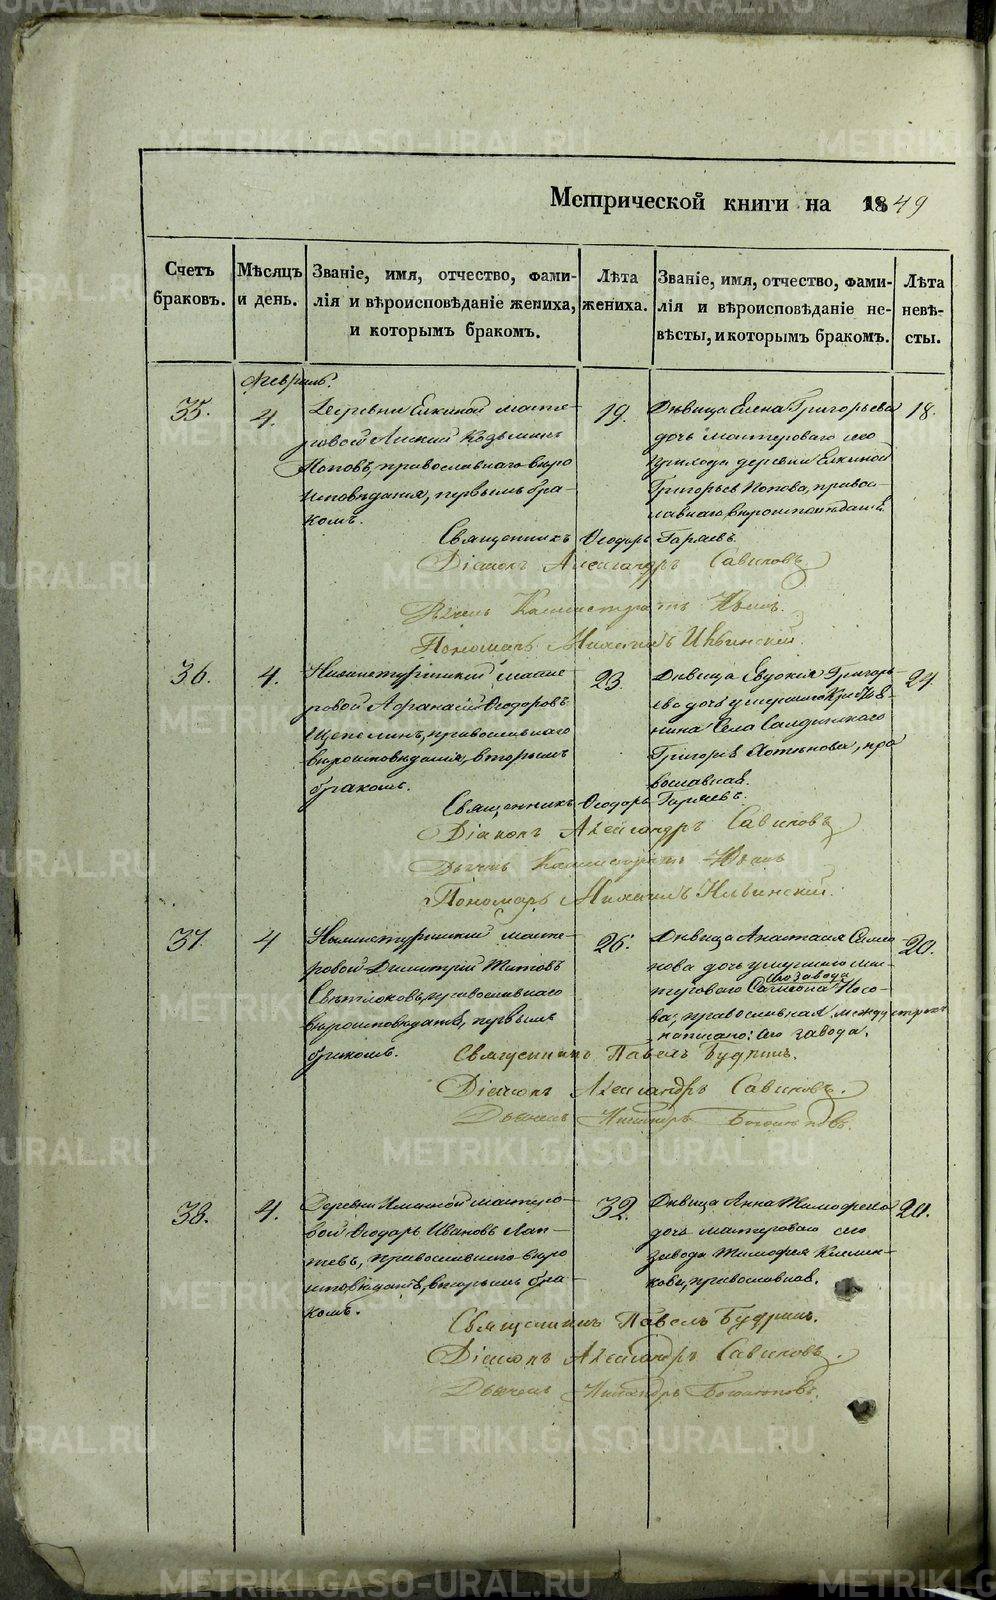 METRIKI.GASO-URAL.RU
Метрической книги на 1849
Счетъ браковъ.
Мѣсяцъ и день.
Званіе, имя, отчество, фами-
лія и вѣроисповѣданіе жениха,
и которымъ бракомъ.
Лѣта жениха.
Званіе, имя, отчество, фами-
лія и вѣроисповѣданіе не-
вѣсты, и которымъ бракомъ.
Лѣта невѣ-
сты.
Февраль.
35.
4.
Деревни Елкиной масте-
ровой Козьминъ
Поповъ, православнаго вѣро
исповѣданія, первымъ бра-
комъ.
19.
Дѣвица Елена Григорьева
дочь мастероваго сего
прихода деревни Елкиной
Григорья Попова, право-
славнаго вѣроисповѣданія
18.
Священникъ Ѳеодоръ Гаряевъ.
Діаконъ Александръ Савиновъ
Дьячекъ Каллистратъ
Пономарь Михаилъ Ильинскій.
36.
4.
Нижнетуринскій масте-
ровой Афанасій Ѳеодоровъ
Щепелинъ, православнаго
вѣроисповѣданія, вторымъ
бракомъ.
23.
Дѣвица Евдокия Григорь-
ева дочь умершаго крестья-
нина Села Салдинскаго
Григорія Хотѣнова, пра
вославная.
24.
Священникъ Ѳеодоръ Гаряевъ.
Діаконъ Александръ Савиновъ
Дьячекъ Каллистратъ
Пономарь Михаилъ Ильинскій.
37.
4
Нижнетуринскій масте-
ровой Димитрій Титовъ
православнаго
вѣроисповѣданія, первымъ
бракомъ.
26.
Дѣвица Анастасия Симео
нова дочь умершаго мас-
сего завода
тероваго Симеона Носо-
ва, православная. между строкъ
написано: сего завода.
20.
Священникъ Павелъ Будринъ.
Діаконъ Александръ Савиновъ.
Дьячекъ Никандръ
38.
4.
Деревни мастеро-
вой Ѳеодоръ Ивановъ Лап-
тевъ, православнаго вѣро
исповѣданія, вторымъ бра-
комъ.
32.
Дѣвица Анна Тимофеева
дочь мастероваго сего
завода Тимофея
православная.
20.
Священникъ Павелъ Будринъ.
Діаконъ Александръ Савиновъ.
Дьячекъ Никандръ